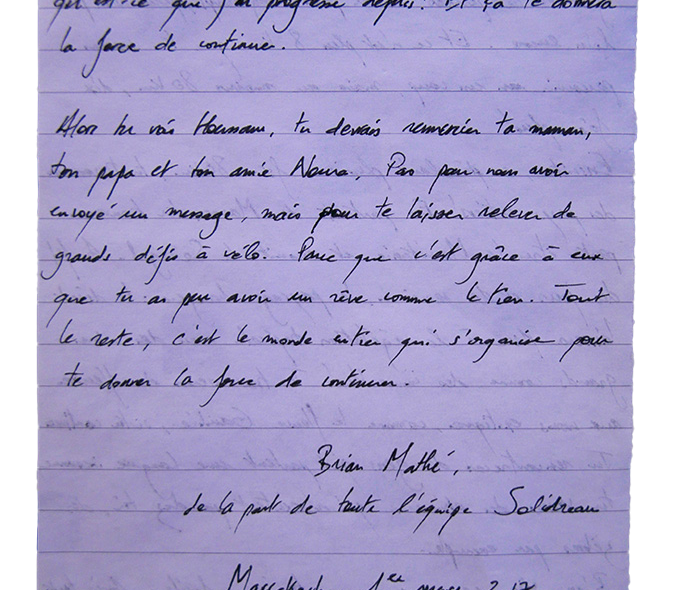 qui est-ce que j'ai progressé depuis! Et ça te donnera
la force de continuer.
Alors tu vois Houssam, tu devrais remercier ta maman,
ton papa et ton amie Noura, Pas pour nous avoir
envoyé un message, mais pour te laisser relever de
grands défis à vélo. Parce que c'est grâce à eux
que tu as pu avoir un rêve comme le tien. Tout
le reste, c'est le monde entier qui s'organise pour
te donner la force de continuer.
Brian Mathé,
de la part de toute l'équipe Solidream